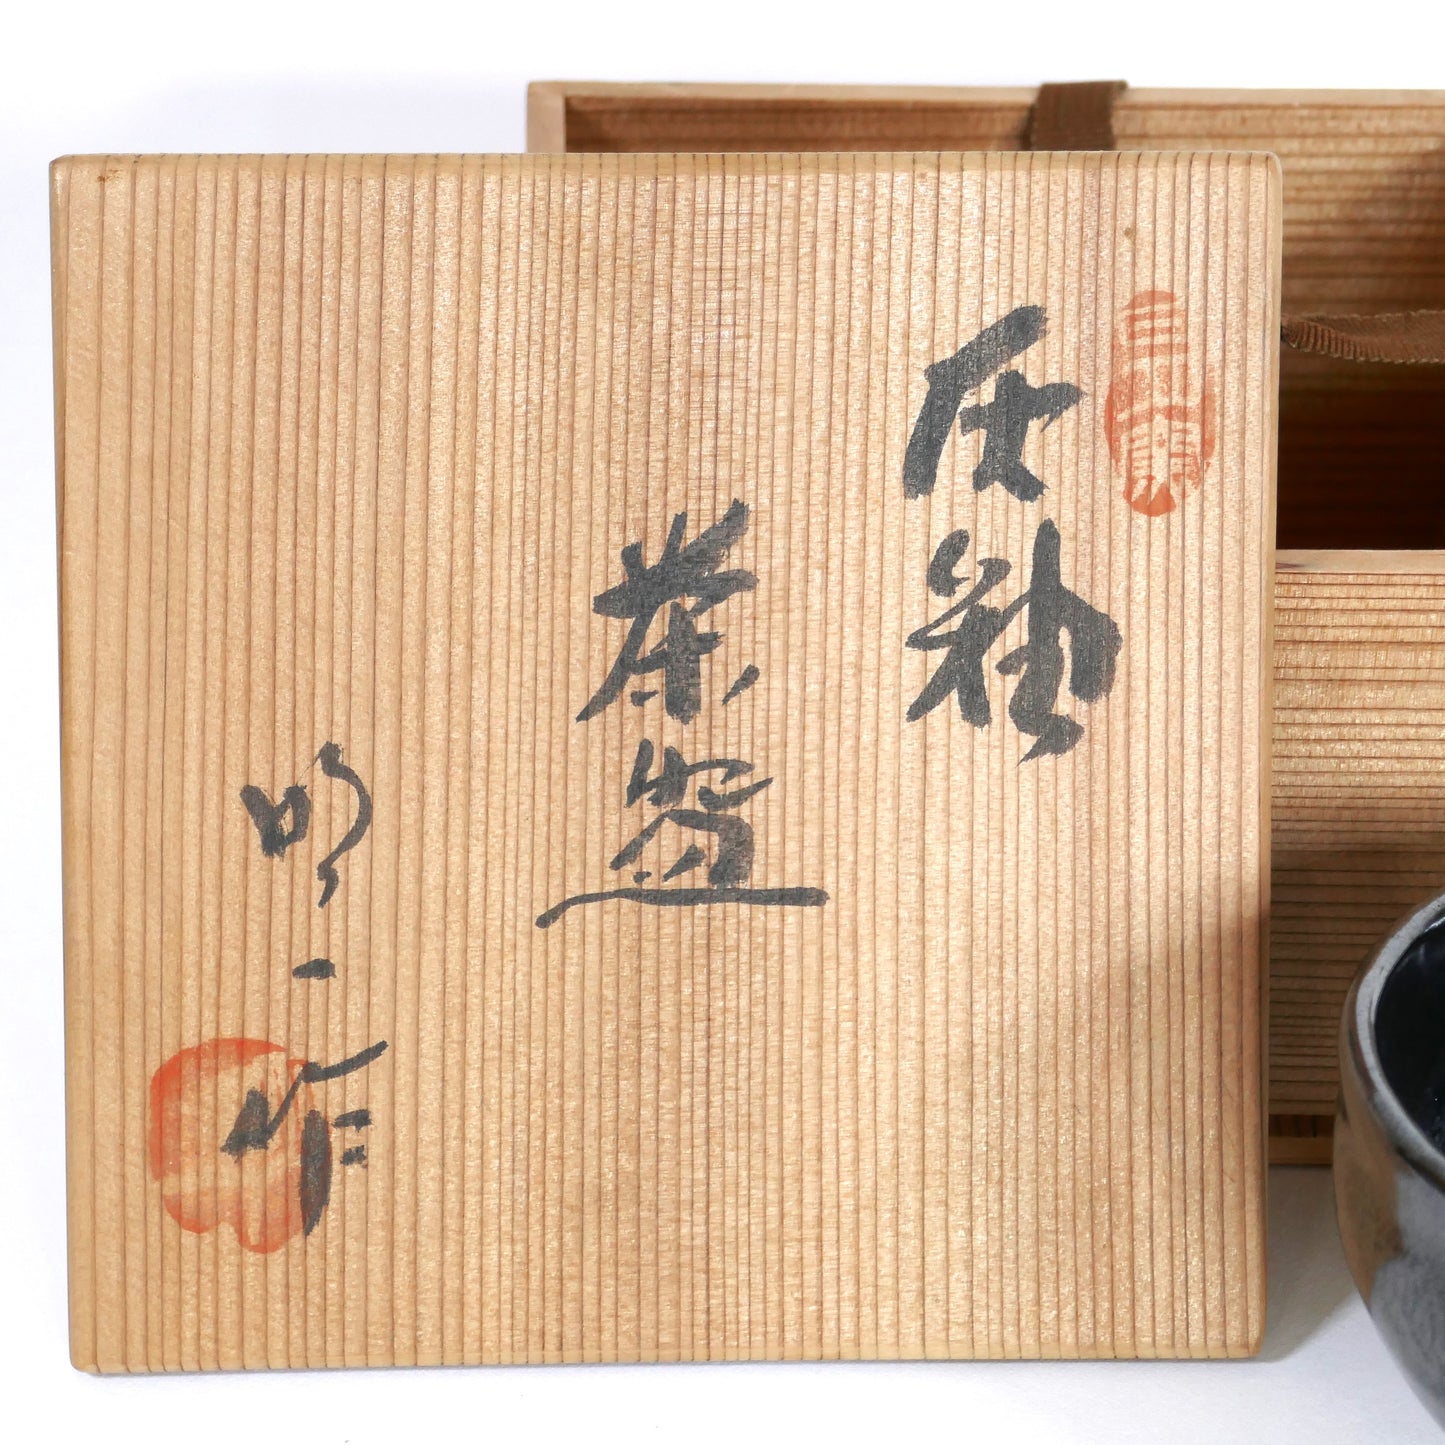 灰釉
茶盌
明二作